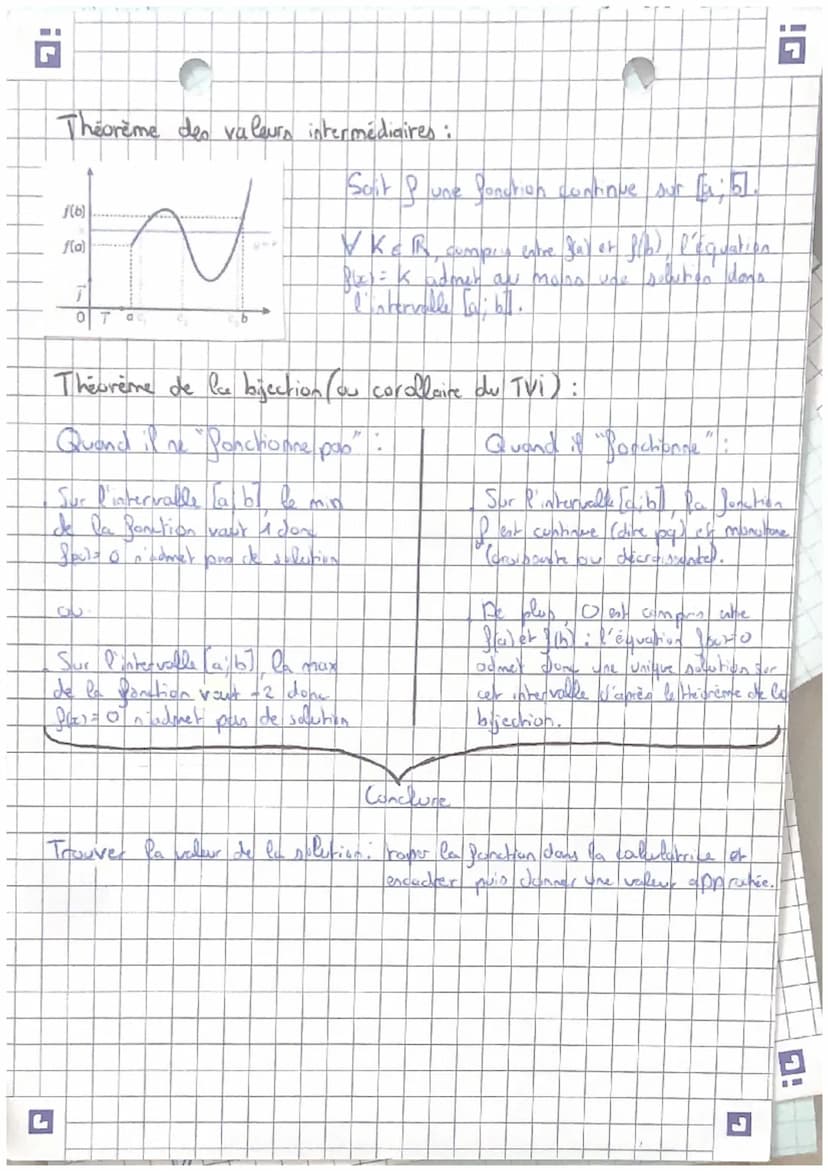 Théorème des valeurs intermédiaires :
Soit f une fonction continue sur [a ; b].
f(b)
f(a)
∀ K ∈ ℝ, compris entre f(a) et f(b), l'équation
f(x) = K admet au moins une solution dans
l'intervalle [a ; b].
O a b
Théorème de la bijection (ou corollaire du TVi) :
Quand il ne "fonctionne pas" :
Sur l'intervalle [a ; b], le min
de la fonction vaut 1 donc
f(x) = 0 n'admet pas de solution
ou
Sur l'intervalle [a ; b], la max
de la fonction vaut -2 donc
f(x) = 0 n'admet pas de solution
Quand il "fonctionne" :
Sur l'intervalle [a ; b], la fonction
f est continue (dire pq) et monotone
(croissante ou décroissante).
De plus, 0 est compris entre
f(a) et f(b) : l'équation f(x) = 0
admet donc une unique solution sur
cet intervalle d'après le théorème de la
bijection.
Conclure
Trouver la valeur de la solution : la fonction dans la calculatrice et
encadrer puis donner une valeur approchée.